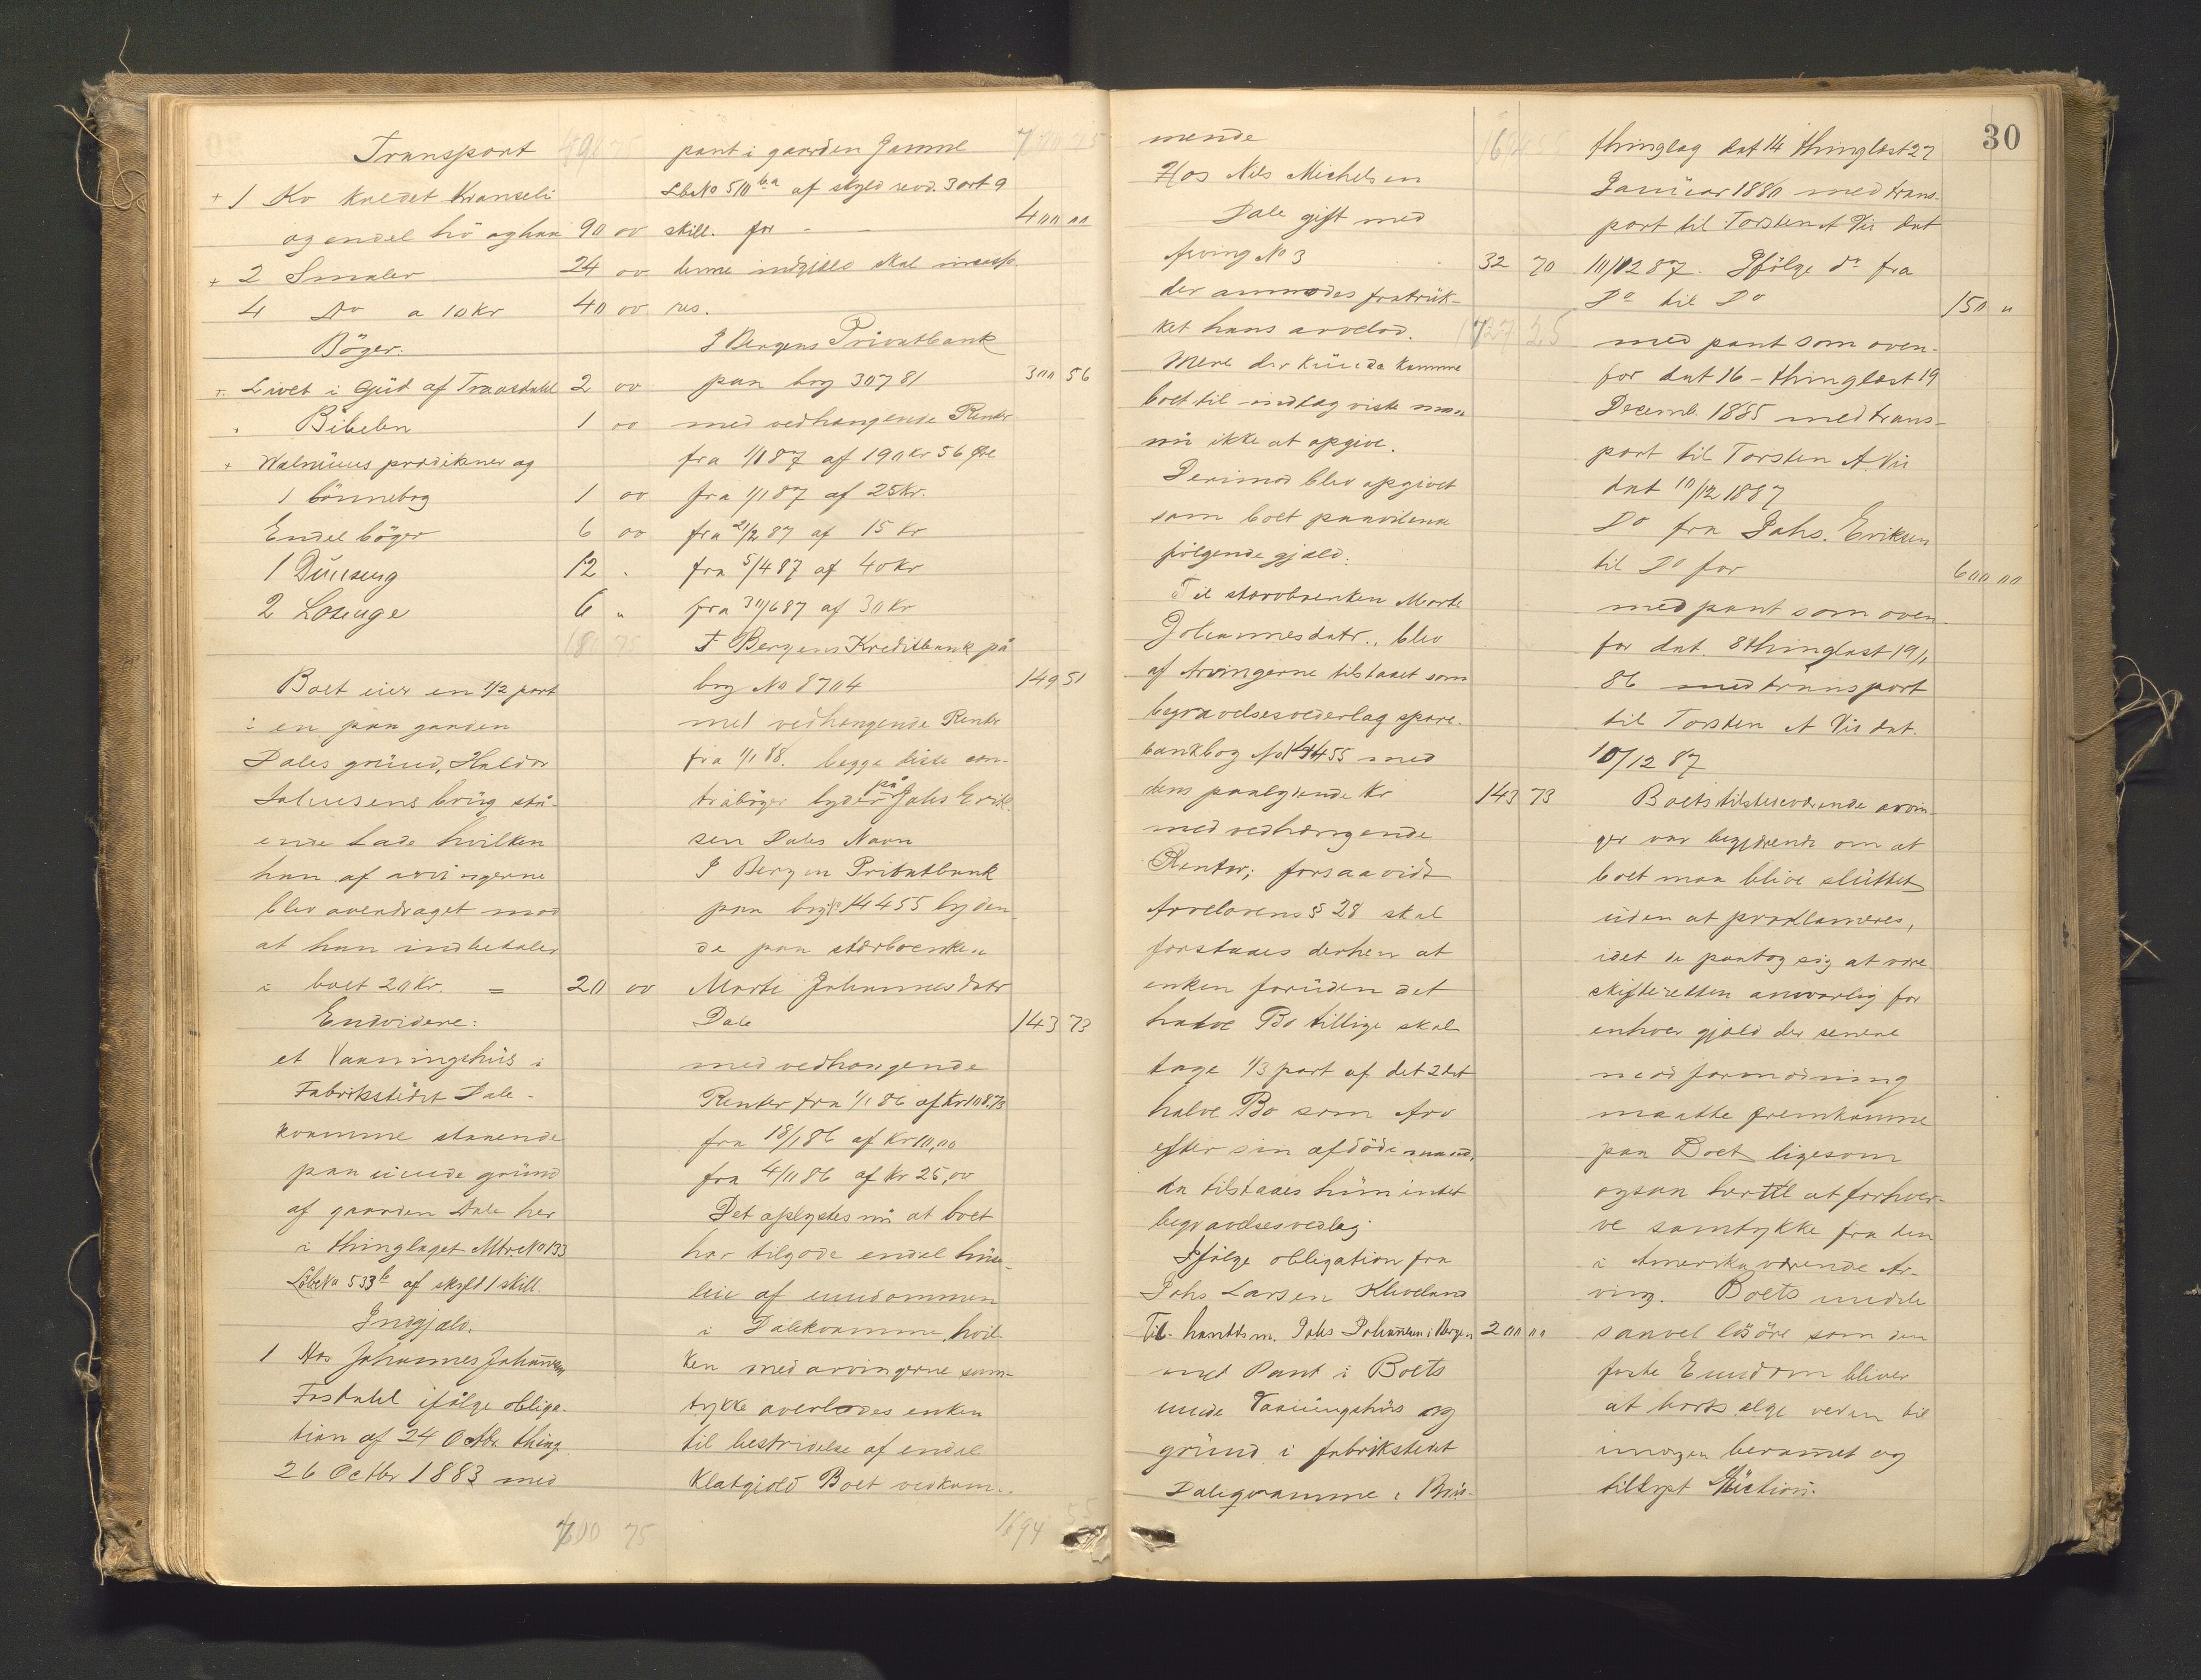 Transport
+ 1 Ko kaldet Kranseli
og endel hö og 90 00
+ 2 Smaler 24 00
4 Do a 10 Kr 40 00
Böger.
Livet i Gud af Traasdahl 2 00
Bibelen 1 00
+ prædikener og
1 bönnebog 1 00
Endel böger 6 00
1 Dunseng 12 "
2 6 "
Boet eier en 1/2 part
i en paa gaarden
Dales grund, Haldor
brug stå-
ende Lade hvilken
han af arvingerne
blev overdraget mod
at han indbetaler
i boet 20 Kr. = 20 00
Endvidere:
et Vaaningshus i
Fabrikstedet Dale-
kvamme staaende
paa eiende grund
af gaarden Dale her
i thinglaget Mtr No 133
Löbe No 533 b af skyld 1 skill.
Indgjæld.
1 Hos Johannes Johannesen
Fosdahl ifölge obliga-
tion af 24 Octbr. thing.
26 Octbr 1883 med
700 75
pant i gaarden Jamne
Lbe No 510 b.a af skyld revd. 3 ort 9
skill. for - - 400 00
denne indgjæld skal
res.
I Bergens Privatbank
paa bog 30781 300 56
med vedhængende Renter
fra 1/1 87 af 190 Kr 56 Øre
fra 1/1 87 af 25 Kr.
fra 21/2 87 af 15 Kr
fra 5/4 87 af 40 Kr
fra 30/6 87 af 30 Kr
I Bergens Kreditbank på
bog No 8704 149 51
med vedhængende Renter
fra 1/1 88. begge disse con-
trabøger lyder på Johs Erik-
sen Dales Navn
I Bergen Privatbank
paa bog No 14455 lyden-
de paa stærboenken
Marte Johannesdatr
Dale 143 73
med vedhængende
Renter fra 1/1 86 af Kr 108,73
fra 18/1 86 af Kr 10,00
fra 4/11 86 af Kr 25,00
Det oplystes nu at boet
har tilgode endel huse-
leie af eiendommen
i Dalekvamme, hvil-
ken med arvingerne sam-
tykke overlodes enken
til bestridelse af endel
Klatgjæld Boet vedkom-
1694 55
mende
Hos Nils Michelsen
Dale gift med
Arving No 3 32 70
der anmodes fratruk-
ket hans arvelod.
Mere der kunde komme
boet til indtag viste man
nu ikke at opgive.
Derimod blev opgivet
som boet paahvilende
følgende gjæld:
Til stærboenken Marte
Johannesdatr., blev
af Arvingerne tilstaaet som
begravelsesvederlag spare-
bankbog No 14455 med
dens paalydende Kr 143 73
med vedhængende
Renter; forsaavidt
Arvelovens § 28 skal
forstaaes derhen at
enken foruden det
halve Bo tillige skal
tage 1/3 part af det 2det
halve Bo som Arv
efter sin afdöde mand,
da tilstaaes hun intet
begravelsesvedlag.
Ifølge obligation fra
Johs Larsen Kleveland
Til handelsm. Johs Johannesen i Bergen 200 00
med Pant i Boets
eiende Vaaningshus og
grund i fabrikstedet
Daleqvamme i Brus-
30
thinglag dat 14 thinglæst 27
Januar 1880 med trans-
port til Torsten A Vis dat
10/12 87. Ifölge do fra
Do til Do 150 "
med pant som oven-
for dat 16 - thinglæst 19
Decemb. 1885 med trans-
port til Torsten A Vis
dat 10/12 1887
Do fra Johs. Eriksen
til Do for 600 00
med pant som oven-
for dat. 8 thinglæst 19/1
86 med transport
til Torsten A Vis dat.
10/12 87
Boets tilstedeværende arvin-
ger var begjærende om at
boet maa blive sluttet
uden at proklameres,
idet de paatog sig at være
skifteretten ansvarlig for
enhver gjæld der senere
mod formodning
maatte fremkomme
paa Boet ligesom
ogsaa hertil at forhver-
ve samtykke fra den
i Amerika værende Ar-
ving. Boets eiendele
saavel lösöre som den
faste Eiendom bliver
at bortsælge ved en til
imorgen berammet og
tillyst Auction.